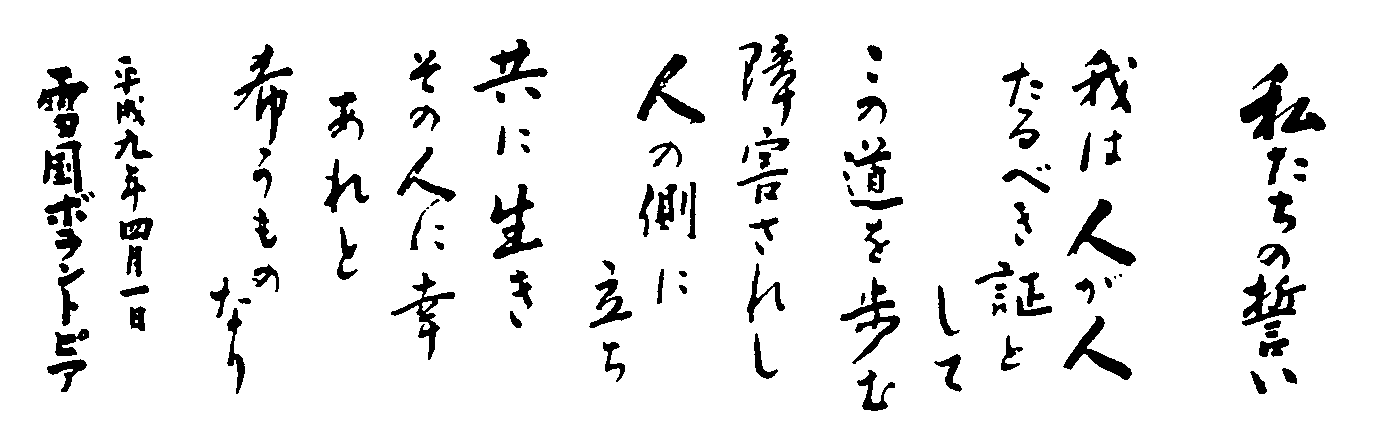 私たちの誓い
我は人が人
たるべき証と
して
この道を歩む
障害されし
人の側に
立ち
共に生き
その人に幸
あれと
希うもの
なり
平成九年四月一日
雪国ボラントピア